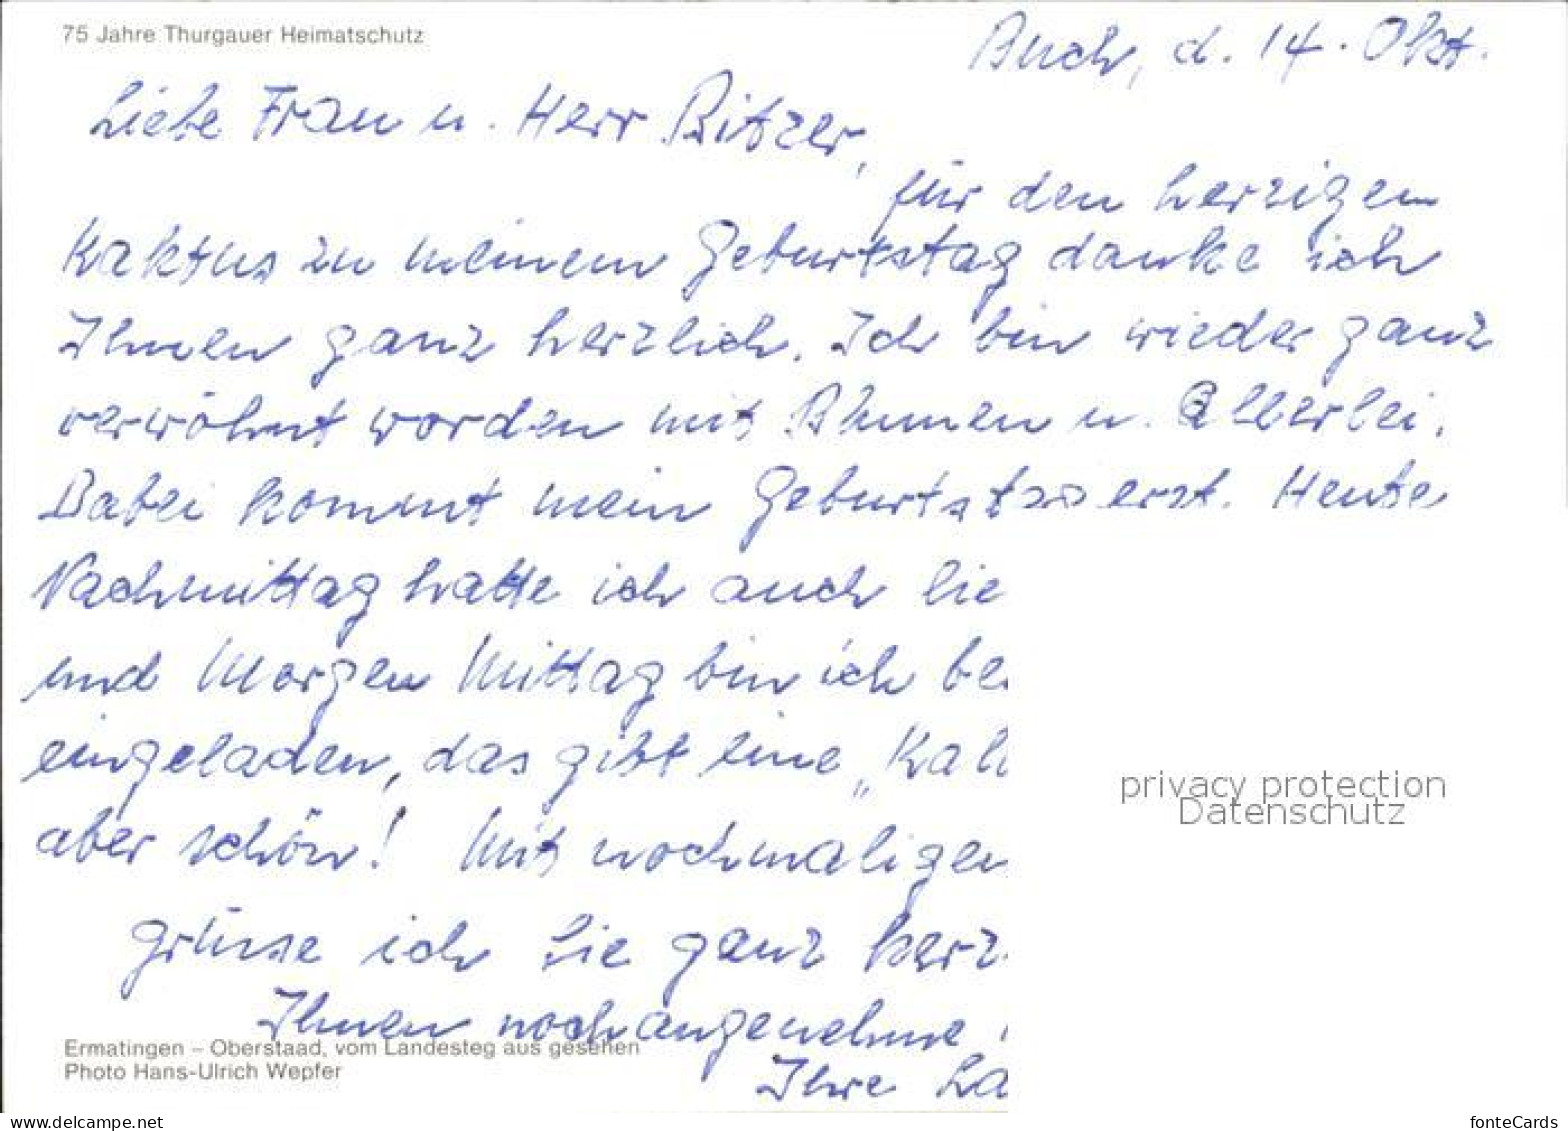 75 Jahre Thurgauer Heimatschutz
Buch, d. 14. Okt.
Liebe Frau u. Herr Bitzer,
für den herzigen
Kaktus zu meinem Geburtstag danke ich
Ihnen ganz herzlich. Ich bin wieder ganz
verwöhnt worden mit Blumen u. Allerlei.
Dabei kommt mein Geburtstag erst. Heute
Nachmittag hatte ich auch lie
und Morgen Mittag bin ich be
eingeladen, das gibt eine „Kal
aber schön! Mit nochmaligen
grüsse ich Sie ganz herz
Ihnen noch angenehme
Ermatingen – Oberstaad, vom Landesteg aus gesehen
Photo Hans-Ulrich Wepfer
Ihre La
privacy protection
Datenschutz
www.delcampe.net
fonteCards